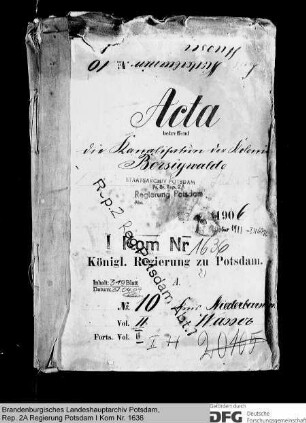 Niederbarnim No. 10
Wasser
Acta
betreffend
die Kanalisation der Kolonie
Borsigwalde
STAATSARCHIV POTSDAM
Pr. Br. Rep. 2
Regierung Potsdam
1906
I Kom Nr 1636
Rep. 2 Reg. Potsdam Abt. I
Königl. Regierung zu Potsdam.
Inhalt: 319 Blatt
Datum:
A.
No. 10 Niederbarnim
Vol. II Wasser
Forts. Vol.
Brandenburgisches Landeshauptarchiv Potsdam,
Rep. 2A Regierung Potsdam I Kom Nr. 1636
Gefördert durch
DFG Deutsche
Forschungsgemeinschaft